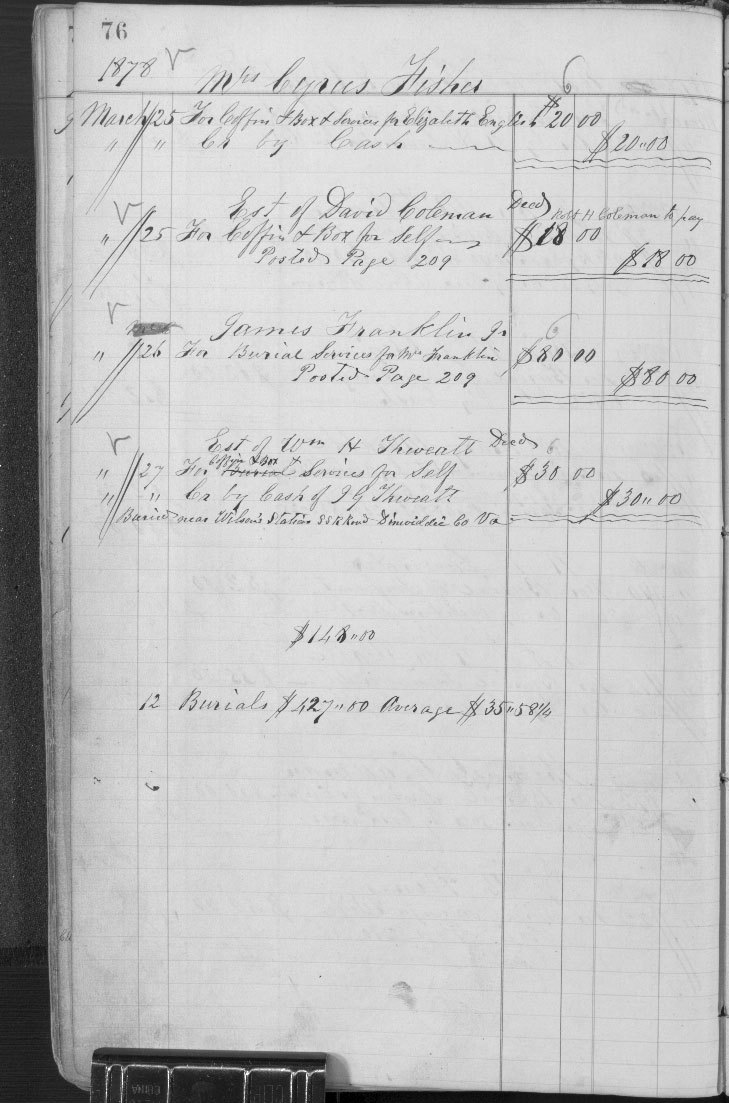 76
1878 Mrs Cyrus Fisher 6
March 25 For Coffin & Box & Services for Elizabeth English $20 00
" " Cr by Cash $20"00
Est of David Coleman Decd Robt H Coleman to pay
" 25 For Coffin & Box for Self $18 00
Posted Page 209 $18 00
James Franklin Jr 6
" 26 For Burial Services for Mrs Franklin $80 00
Posted Page 209 $80 00
Est of Wm H Thweatt Decd 6
Coffin & Box &
" 27 For Burial Services for Self $30 00
" " Cr by Cash of J G Thweatt $30"00
Buried near Wilson's Station SS R Road Dinwiddie Co Va
$148"00
12 Burials $427"00 Average $35"58¼